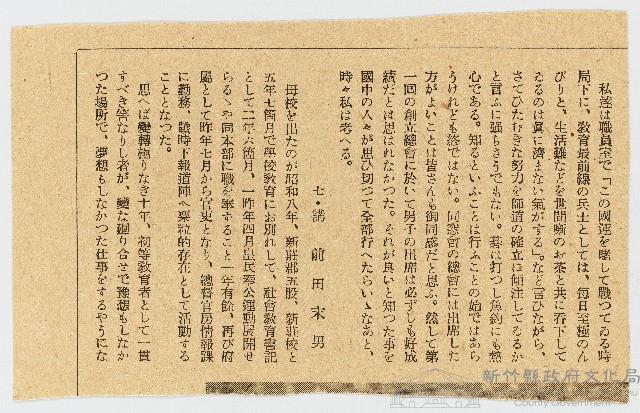 私達は職員室で「この國運を賭して戰つてゐる時
局下に、教育最前線の兵士としては、毎日至極のん
びりと、生活難などを世間話のお茶と共に呑下して
ゐるのは眞に濟まない氣がする」。など言ひながら、
さてひたむきな努力を師道の確立に傾注してゐるか
と言ふに强ちさうでもない。碁は打つし魚釣にも熱
心である。知るといふことは行ふことの始ではあら
うけれども終ではない。同窓會の總會には出席した
方がよいことは皆さんも御同感だと思ふ。然して第
一回の創立總會に於いて男子の出席は必ずしも好成
績だとは思はれなかつた。それが良いと知つた事を
國中の人々が思ひ切つて全部行へたらいゝなあと、
時々私は考へる。
七・講 前田末男
母校を出たのが昭和八年、新莊郡五股、新莊校と
五年七箇月で學校教育にお別れして、社會教育書記
として二年六箇月、一昨年四月皇民奉公運動展開せ
らるゝや同本部に職を奉ずること一年有餘、再び府
屬として昨年七月から官吏となり、總督官房情報課
に勤務、戰時下報道陣へ粟粒的存在として活動する
こととなつた。
思へば變轉極りなき十年、初等教育者として一貫
すべき筈なりし者が、變な廻り合せで豫想もしなか
つた場所で、夢想もしなかつた仕事をするやうにな
新竹縣政府文化局
County Government